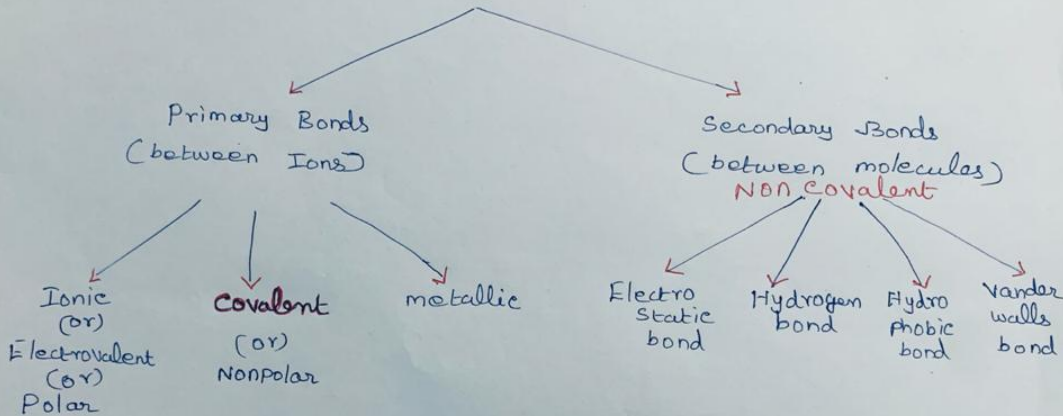 Primary Bonds
(between Ions)
Secondary Bonds
(between molecules)
NON COVALENT
Ionic
(or)
Electrovalent
(or)
Polar
Covalent
(or)
Nonpolar
metallic
Electro
Static
bond
Hydrogen
bond
Hydro
phobic
bond
Vander
walls
bond